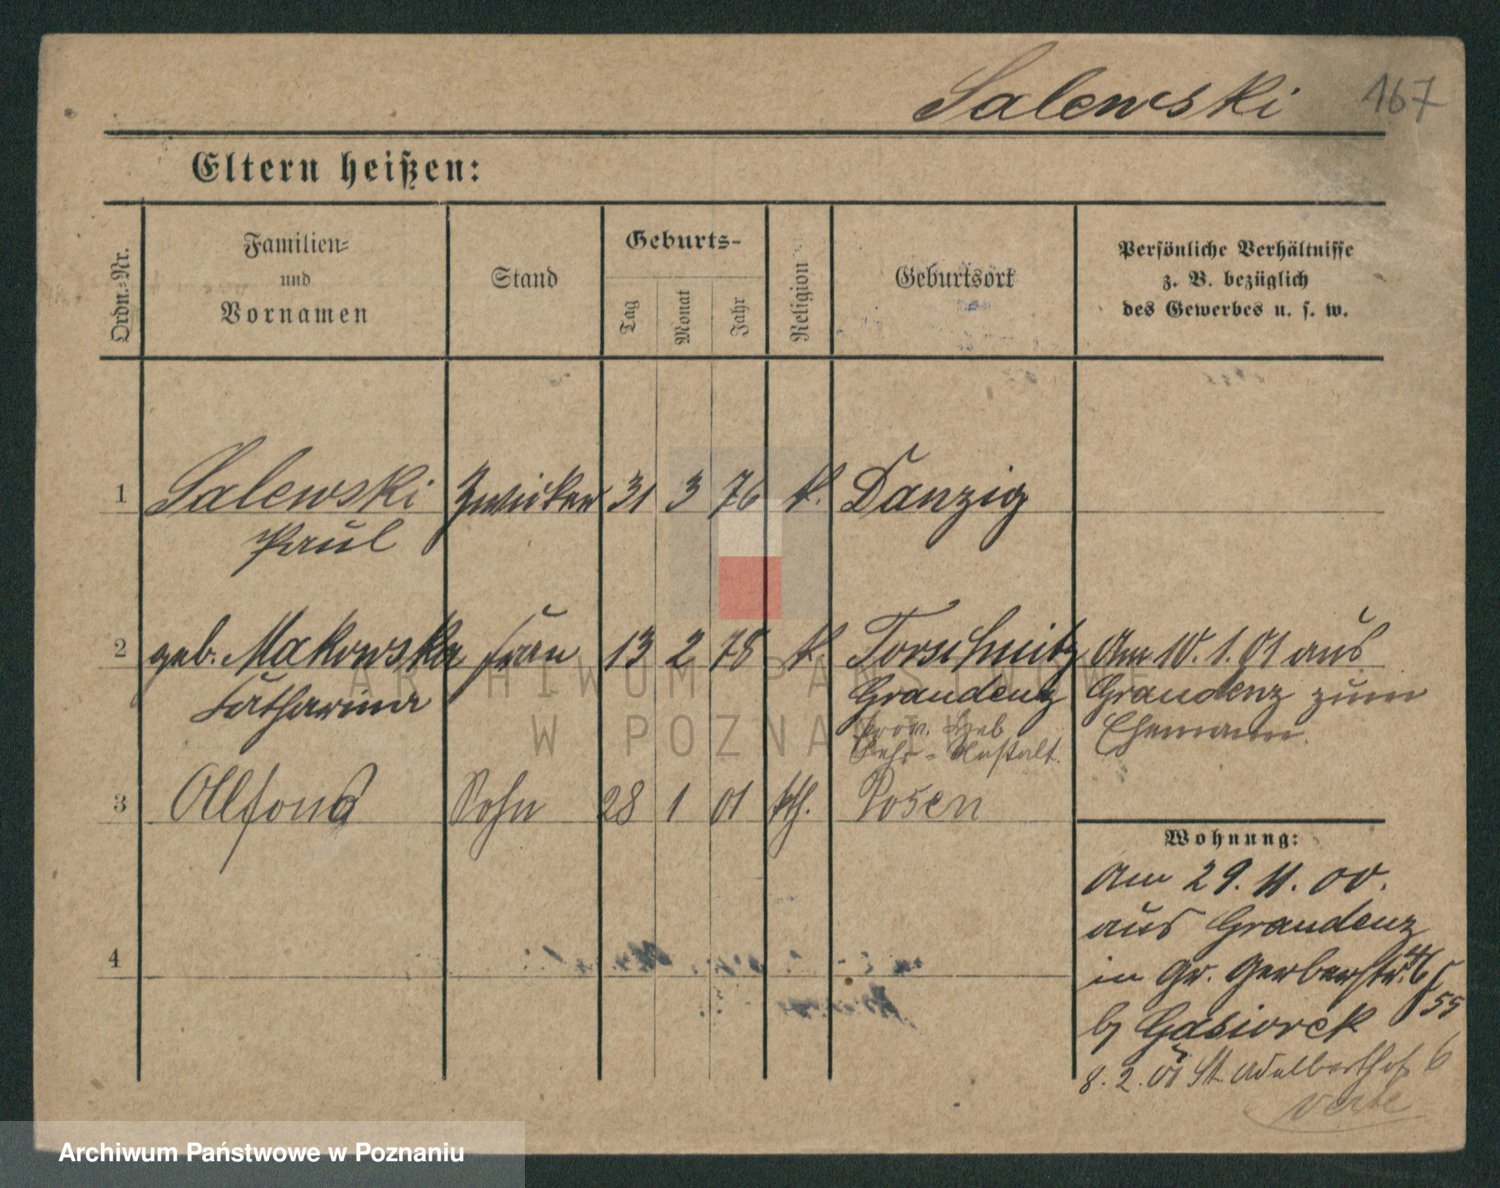 Salewski 167
Eltern heißen:
Ordn.-Nr.
Familien-
und
Vornamen
Stand
Geburts-
Tag
Monat
Jahr
Religion
Geburtsort
Persönliche Verhältnisse
z. B. bezüglich
des Gewerbes u. s. w.
1 Salewski Zwicker 31 3 76 k. Danzig
Paul
2 geb. Makowska Frau 13 2 78 k. Am 10. 1. 01 aus
Catharina Graudenz Graudenz zum
Prov. Heb Ehemann.
Lehr-Anstalt.
3 Alfons Sohn 28 1 01 kth. Posen
Wohnung:
Am 29. 11. 00.
aus Graudenz
4
in Gr. Gerberstr. 46
55
b/ Gasiorek
8. 2. 01 St. Adalberthof 6
verte
ARCHIWUM PAŃSTWOWE
W POZNANIU
Archiwum Państwowe w Poznaniu